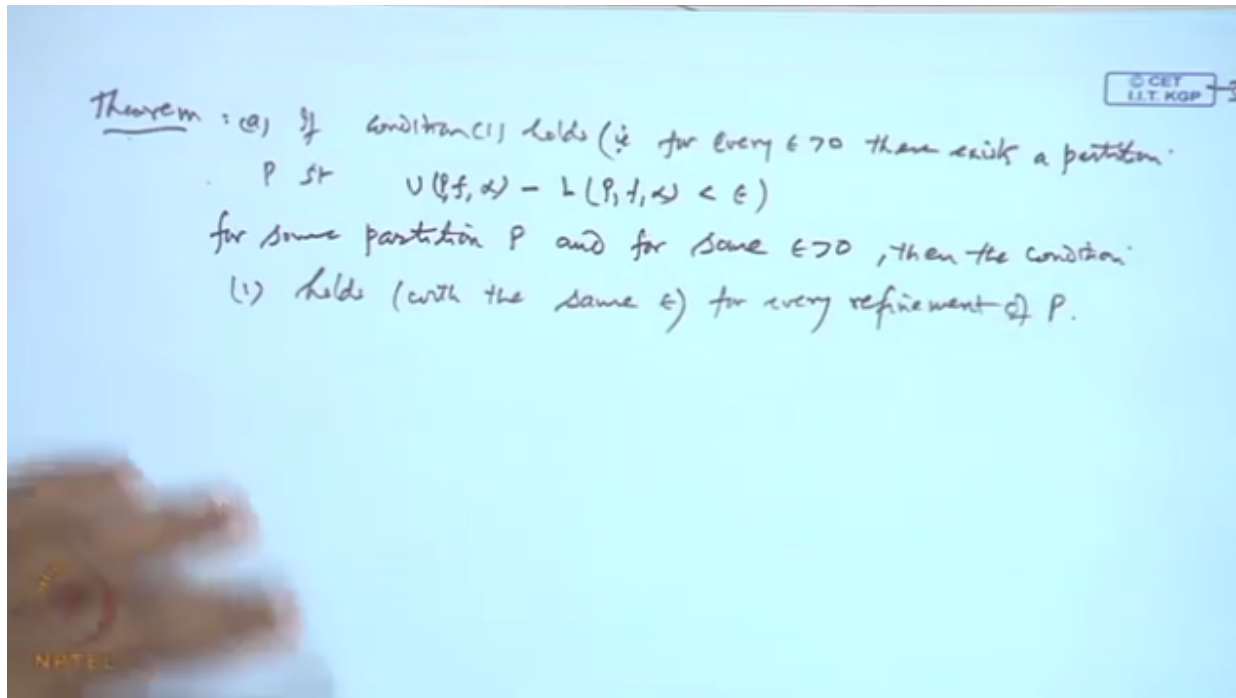 © CET
I.I.T. KGP
Theorem : (a) If condition (1) holds (ie for every ε > 0 there exists a partition
P st U(P,f,α) - L(P,f,α) < ε)
for some partition P and for some ε>0, then the condition
(1) holds (with the same ε) for every refinement of P.
NPTEL